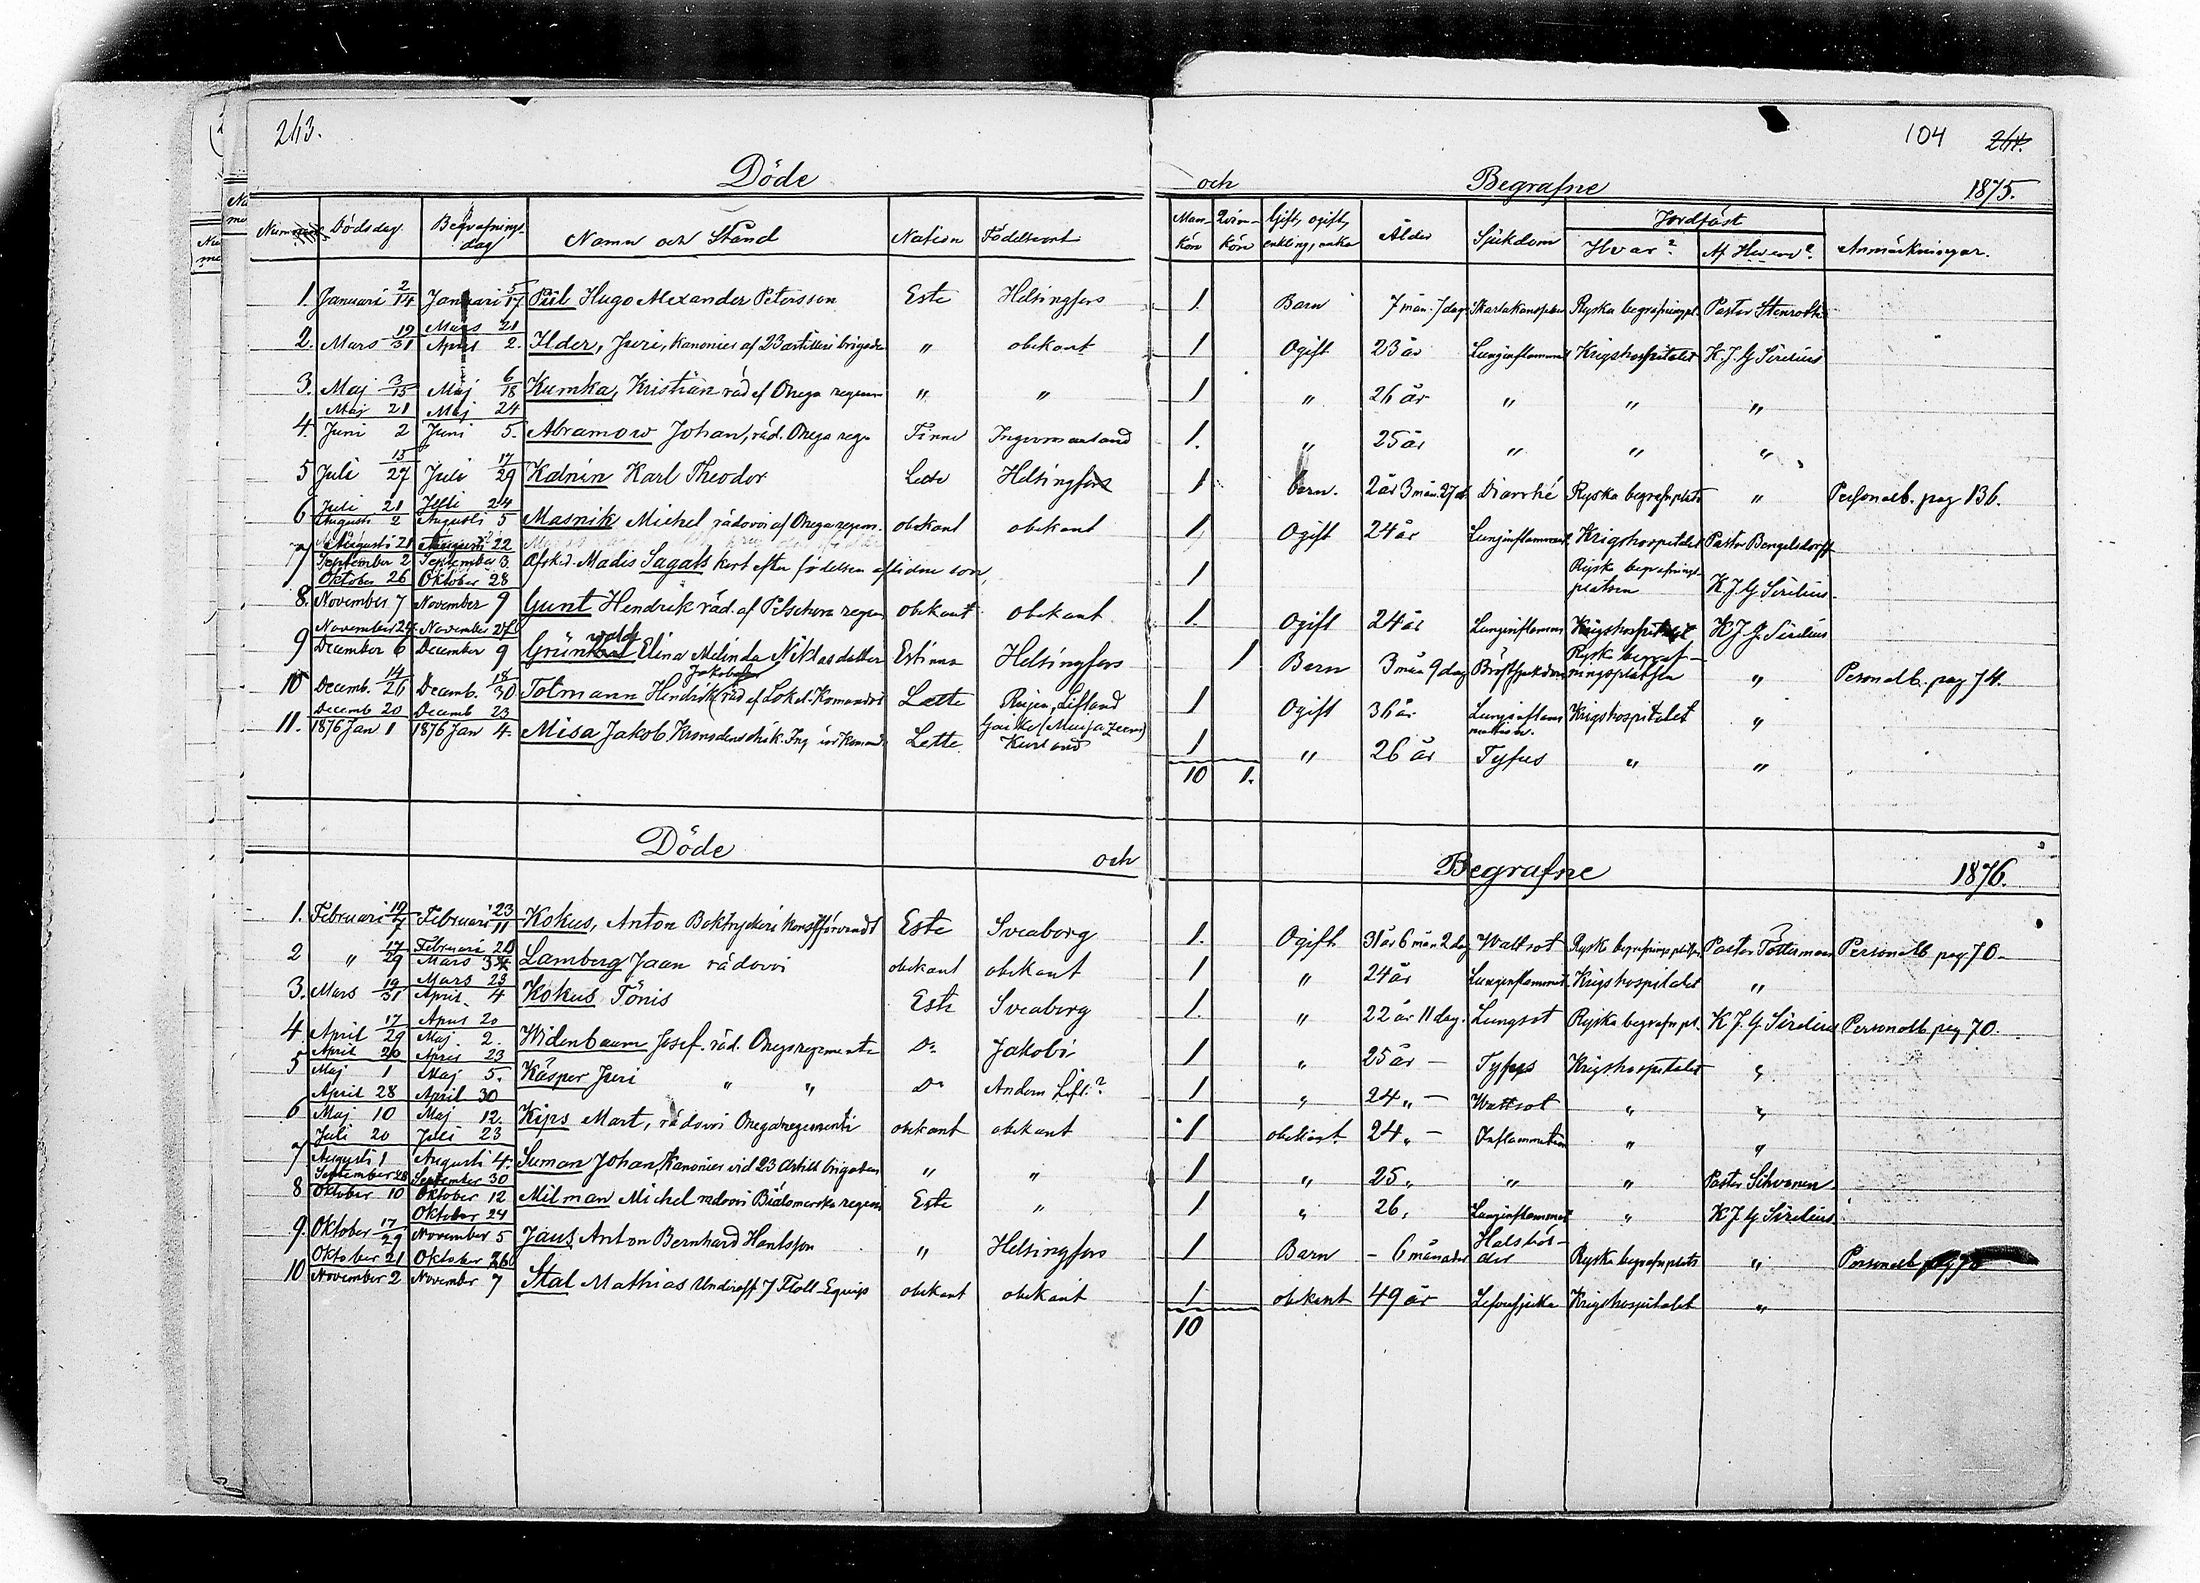 263.
104 264.
Döde
och Begrafne 1875.
Nummer Dödsdag Begrafnings-dag Namn och Stånd Nation Födelseort Man-kön Qvin-kön Gift, ogift, enkling, enka Ålder Sjukdom Jordfäst Hvar? Af Hvem? Anmärkningar.
1. Januari 2/14 Januari 5/17 Piil Hugo Alexander Petersson Este Helsingfors 1. Barn 7 mån. 7 dag. Ryska begrafningspl. Pastor Stenroth
2. Mars 19/31 Mars 21 April 2. Ilder, Juri, kanonier af 23 artilleri brigaden " obekant 1 Ogift 23 år Lunginflammat. Krigshospitalet K. J. G. Sirelius
3. Maj 3/15 Maj 6/18 Kumka, Kristian råd af Onega regem " " 1 " 26 år " " "
4. Maj 21 Juni 2 Maj 24 Juni 5. Abramow Johan, råd. Onega rege Finne Ingermanland 1. " 25 år " " "
5 Juli 15/27 Juli 17/29 Kalnin Karl Theodor Lette Helsingfors 1 barn. 2 år 3 mån. 27 d. Diarrhé Ryska begrafnplats " Personalb. pag 136.
6 Juli 21 Augusti 2 Juli 24 Augusti 5 Masnik Michel rådovoi af Onega regem. obekant obekant 1 Ogift 24 år Lunginflammat. Krigshospitalet Pastor Bengelsdorff
7 Augusti 21 September 2 Augusti 22 September 3. Afsked. Madis Sagats kort efter födelsen aflidne son, 1 Ryska begrafnings-platsen K. J. G. Sirelius.
8. Oktober 26 November 7 Oktober 28 November 9 Gunt Hendrik råd. af Petschora regem obekant obekant 1. Ogift 24 år Lunginflamm Krigshospitalet K J. G. Sirelius
9 November 24 December 6 November 27 December 9 Grünwaldt Elina Melinda Niklasdotter Estinna Helsingfors 1 Barn 3 mån 9 dag Bröstsjukdom Rysk begraf-ningsplatsen " Personalb. pag 74.
10 Decemb. 14/26 Decemb. 18/30 Totmann Hendrik Jakobsson råd af Lokal-Komandot Lette Rujen, Lifland 1 Ogift 36 år Lunginflammation. Krigshospitalet "
11. Decemb 20 1876 Jan 1 Decemb 23 1876 Jan 4. Misa Jakob Lette. Kurland 1 " 26 år Tyfus " "
10 1.
Döde och Begrafne 1876.
1. Februari 19/7 Februari 23/11 Kokus, Anton Boktryckeri konstförvandt Este Sveaborg 1. Ogift 31 år 6 mån 2 dag Wattsot Rysk begrafnings platsen Pastor Töttermann Personalb. pag. 70.
2 " 17/29 Februari 20 Mars Lamberg Jaan rådovoi obekant obekant 1 " 24 år Lunginflammat. Krigshospitalet "
3. Mars 19/31 Mars 23 April 4 Kokus Tönis Este Sveaborg 1. " 22 år 11 dag. Lungsot Ryska begrafn pl. K. J. G. Sirelius Personalb. pag 70.
4. April 17/29 April 20 Maj. 2. Widenbaum Josef. råd. Onegaregementet Do Jakobi 1 " 25 år - Tyfus Krigshospitalet "
5 April 20 Maj 1 April 23 Maj 5. Käsper Juri " " Do Andern Lifl.? 1 " 24 " - Wattsot " "
6 April 28 Maj 10 April 30 Maj 12. Kips Mart, rådovoi Onegaregementi obekant obekant 1 obekant 24 " - Inflammation " "
7 Juli 20 Augusti 1 Juli 23 Augusti 4. Suman Johan, Kanonier vid 23 Artill brigaden " " 1 " 25 " " " Pastor Sihvonen
8 September 28 Oktober 10 September 30 Oktober 12 Milman Michel radovoi Bialomorska regem Este " 1 " 26, Lunginflammat " K J G Sirelius
9. Oktober 17/29 Oktober 24 November 5 Jaus Anton Bernhard Hantsson " Helsingfors 1 Barn - 6 månader Ryska begrafnplats " Personalb pag 70
10 Oktober 21 November 2 Oktober 26 November 7 Stal Mathias Underoff 7 Flott Equip obekant obekant 1 obekant 49 år Lefversjuka Krigshospitalet "
10